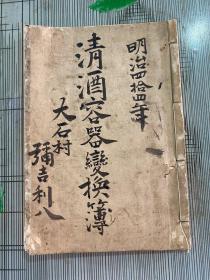 明治四拾四年
清酒容器變換簿
大石村
彌吉利八